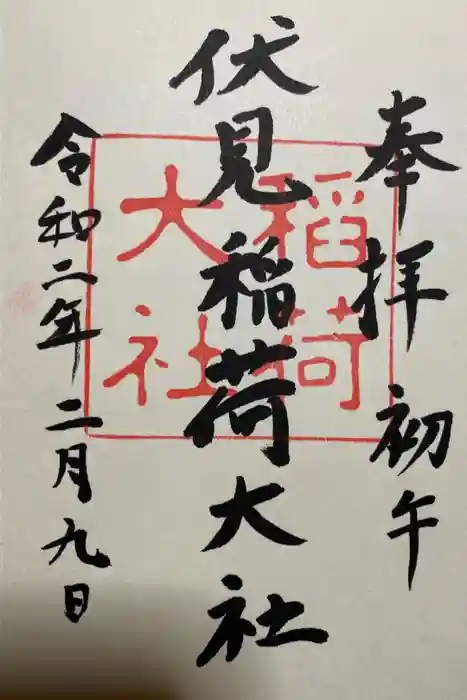 奉拝 初午
伏見稲荷大社
稲荷
大社
令和二年二月九日